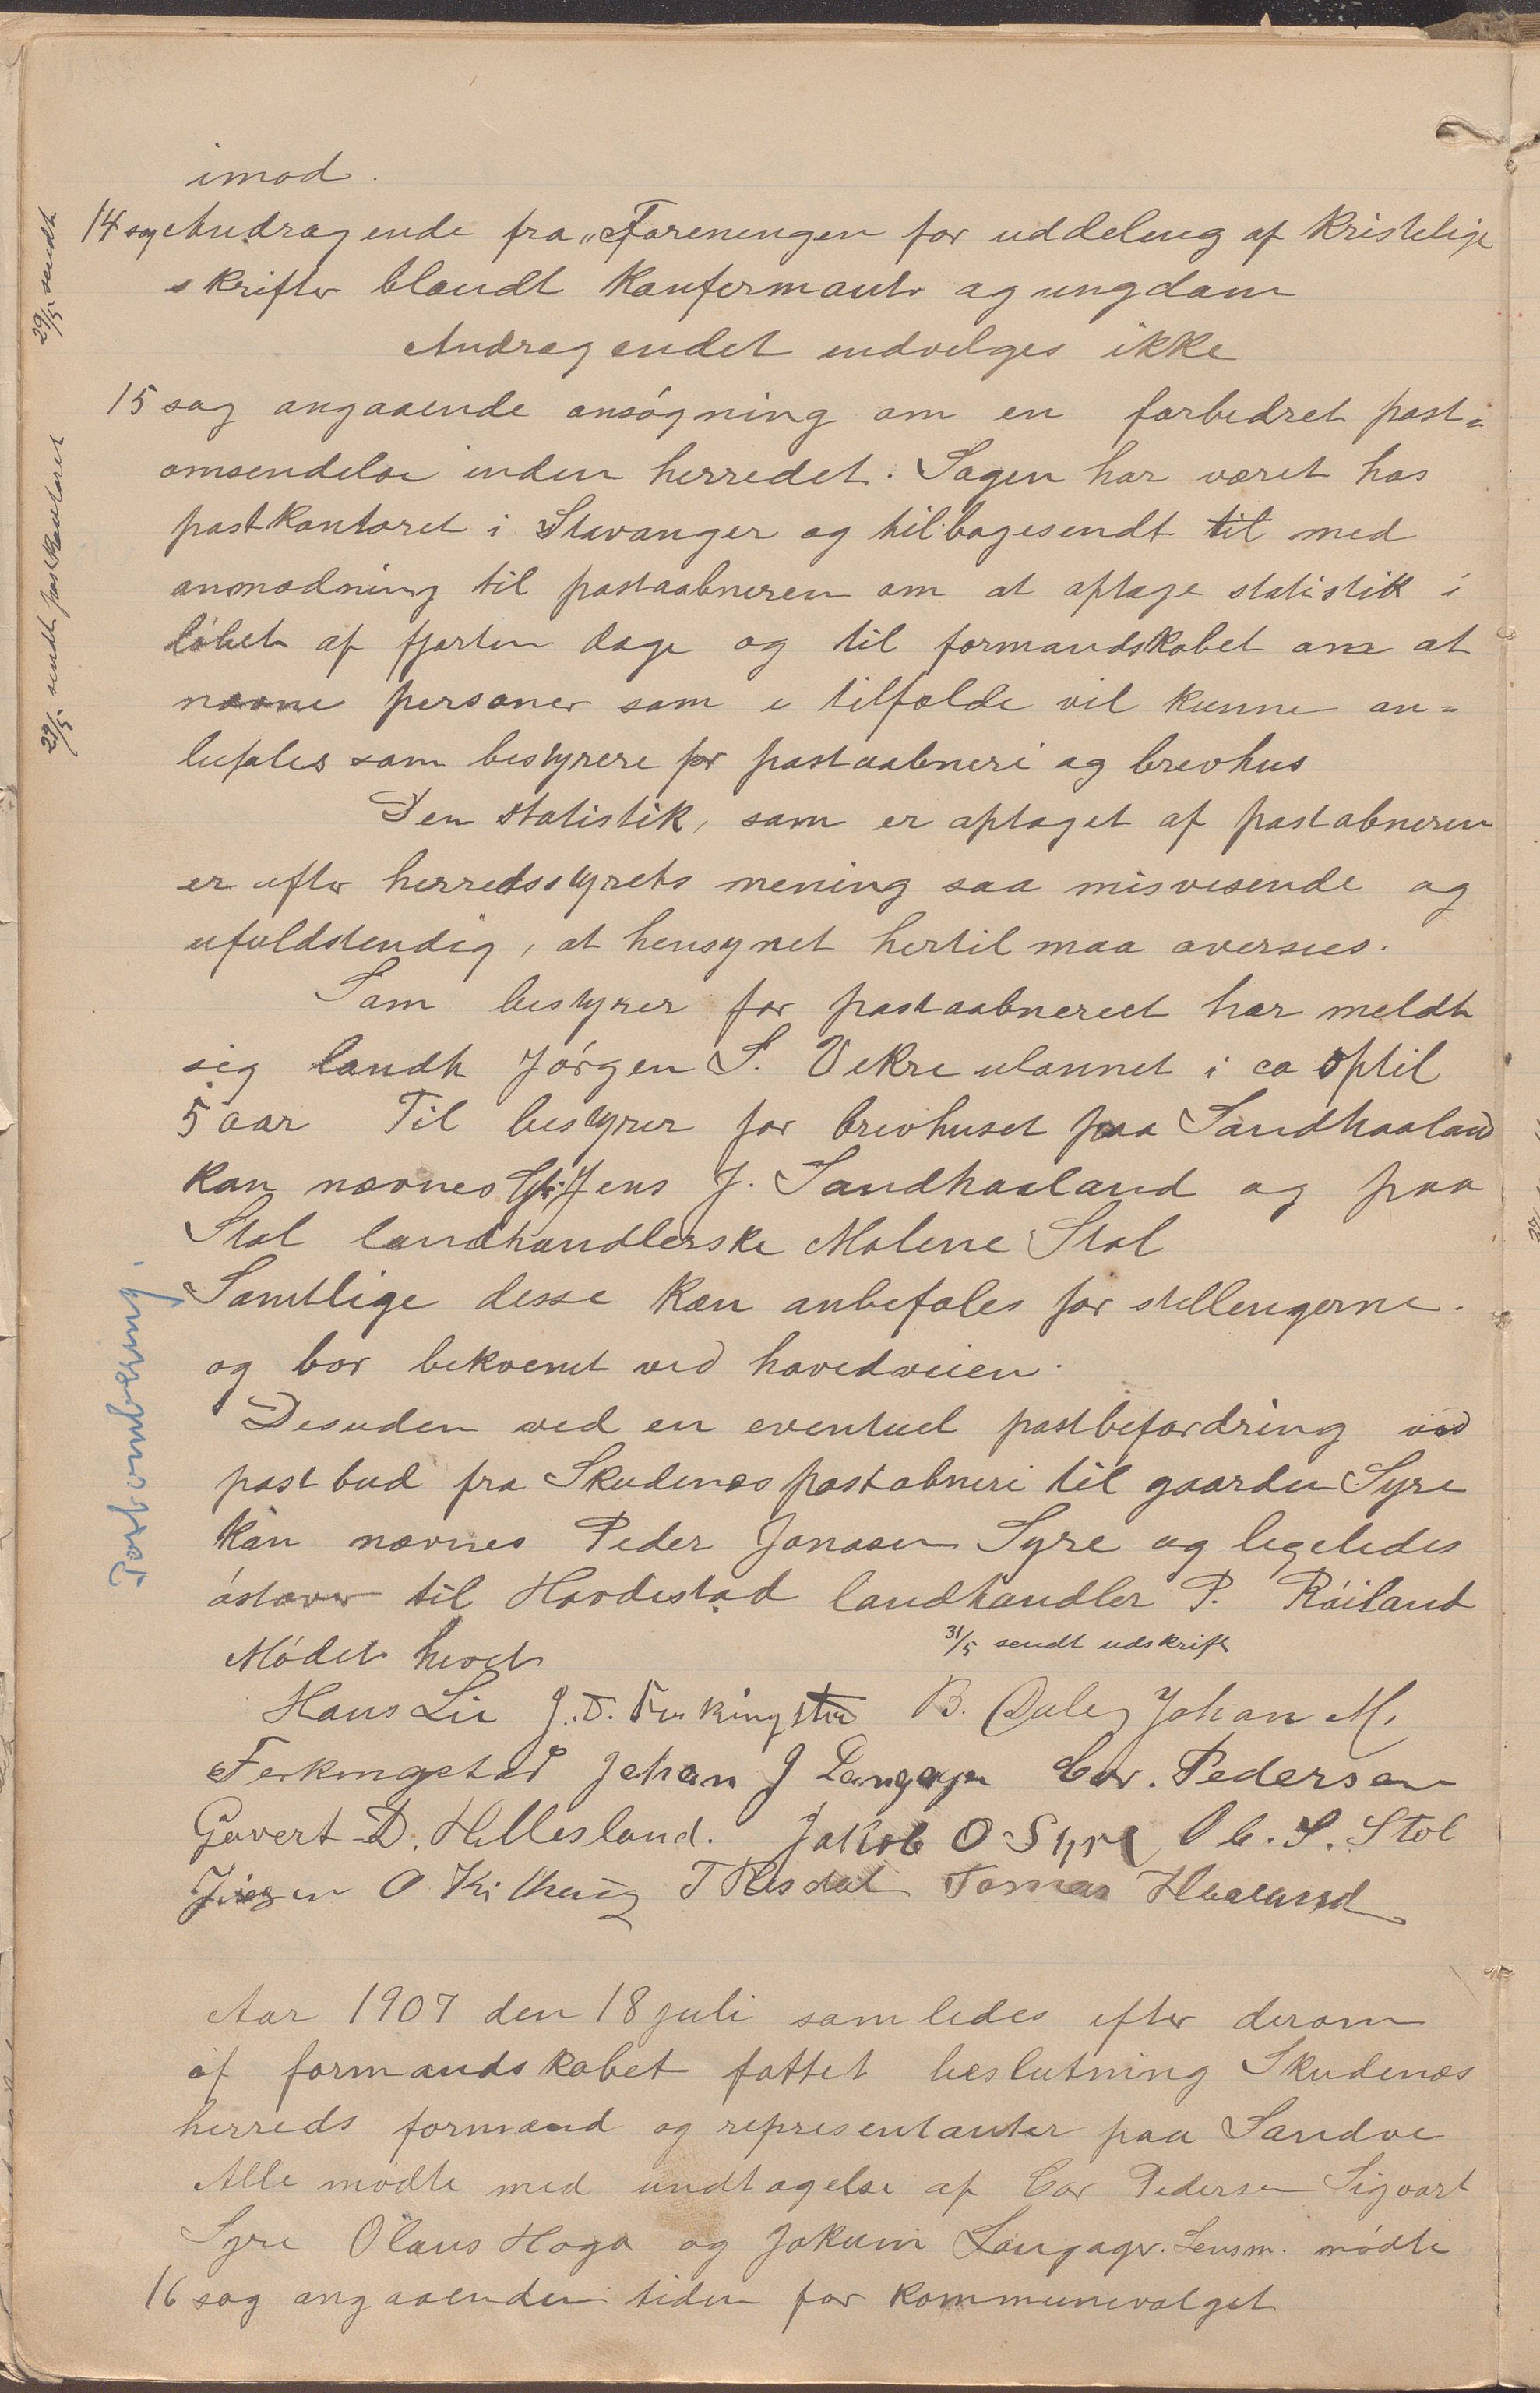 imod.
14 sag Andragende fra „Foreningen for uddeling af kristelige
skrifter blandt konfermanter og ungdom
Andragendet indvilges ikke
29/5 sendt
15 sag angaaende ansøgning om en forbedret post=
omsendelse inden herredet. Sagen har været hos
postkontoret i Stavanger og tilbagesendt til med
anmodning til postaabneren om at optage statistik i
løbet af fjorten dage og til formandskabet om at
nævne personer som i tilfælde vil kunne an=
befales som bestyrere for postaabneri og brevhus
29/5 sendt postkontoret
Den statistik, som er optaget af postabneren
er efter herredsstyrets mening saa misvisende og
ufuldstendig, at hensynet hertil maa oversees.
Som bestyrer for postaabneriet har meldt
sig landh Jørgen S. Vikre ulønnet i ca optil
5 aar Til bestyrer for brevhuset paa Sandhaaland
kan nævnes Jens J. Sandhaaland og paa
Stol landhandlerske Malene Stol
Samtlige disse kan anbefales for stillingerne.
og bor bekvemt ved hovedveien.
Postombæring.
Desuden ved en eventuel postbefordring ved
postbud fra Skudenes postabneri til gaarden Syre
kan nævnes Peder Jonasen Syre og ligeledes
østover til Hovdestad landhandler P. Røiland
Mødet hevet
31/5 sendt udskrift
Hans Lie J. D. Ferkingstad B. Dale Johan M.
Ferkingstad Johan J Langager Cor. Pedersen
Govert D. Hillesland. Jakob O Syre Ob. S. Stol
Jørgen O Kilheng T Risdal Tomas Haaland
Aar 1907 den 18 juli samledes efter derom
af formandskabet fattet beslutning Skudenes
herreds formænd og representanter paa Sandve
Alle mødte med undtagelse af Cor Pedersen Sigvart
Syre Olaus Hoga og Jokum Langager. Lensm. mødte
16 sag angaaende tiden for kommunevalget